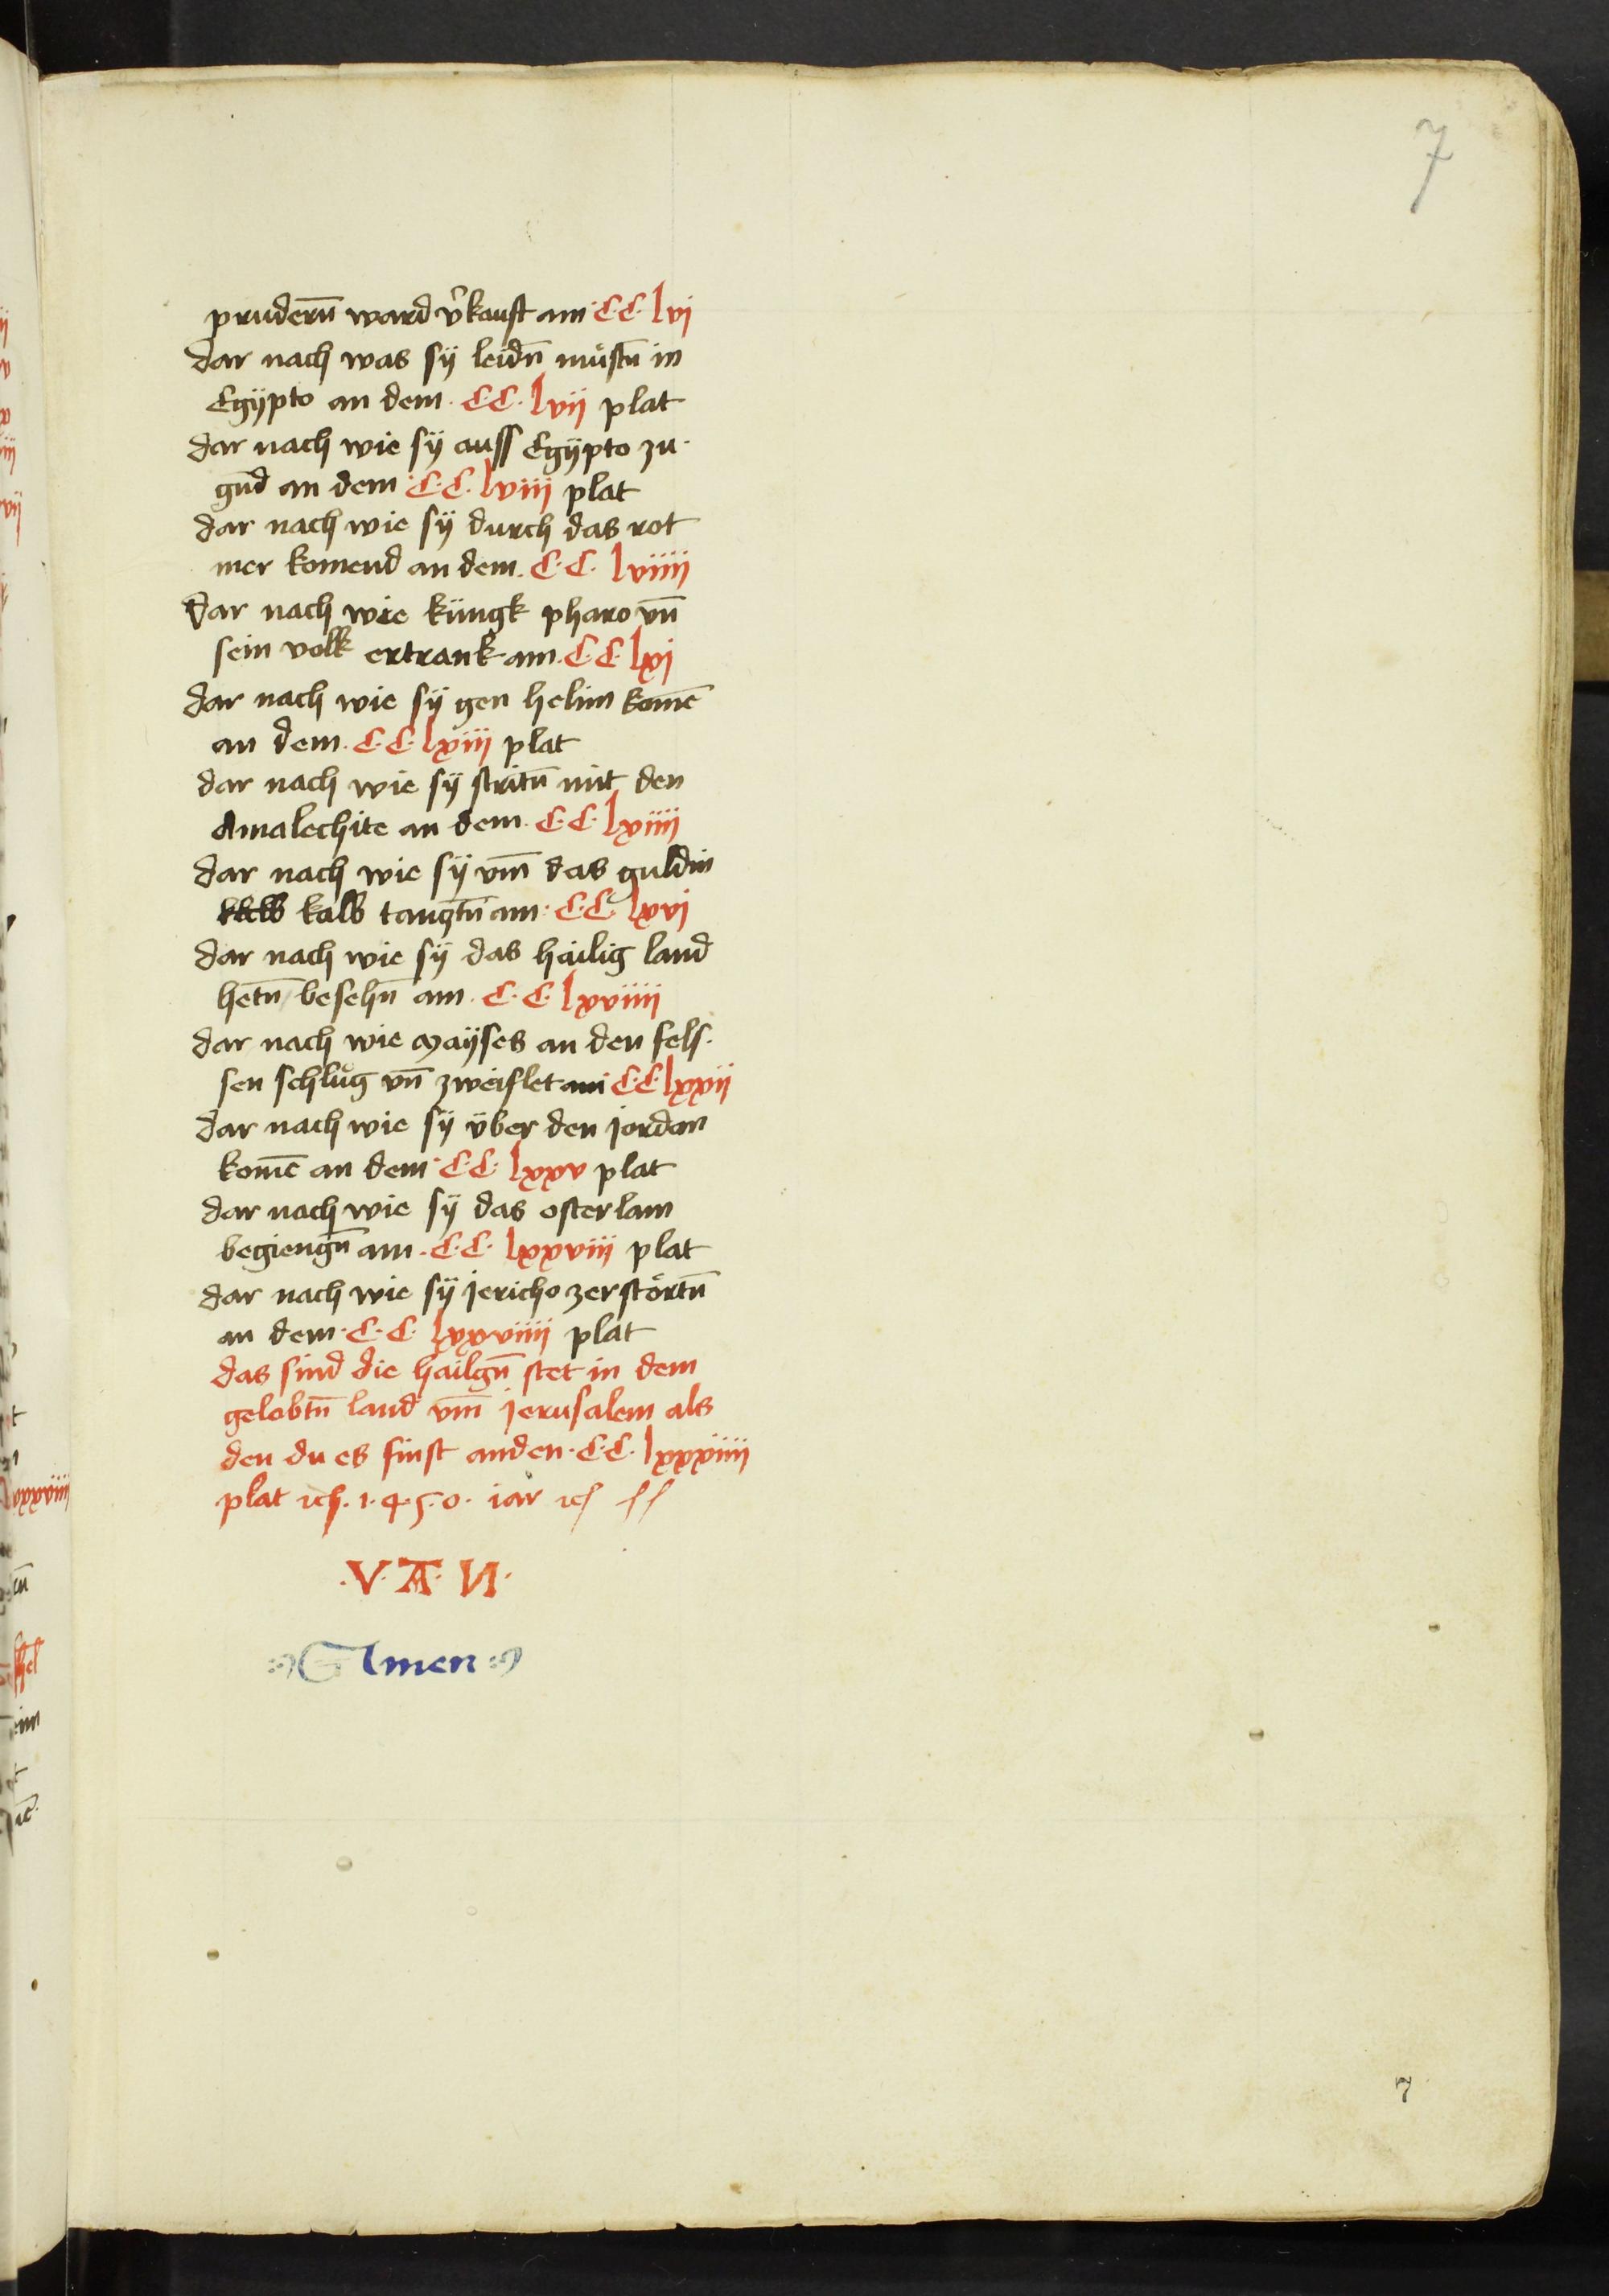 7
prudern̄ ward v̉kauft am C·C· lvi
dar nach was sÿ leidn̄ mustn̄ in
Egÿpto an dem · C·C· lvii plat
dar nach wie sÿ auss Egÿpto zu·
gnd̄ an dem · C·C· lviii plat
dar nach wie sÿ durch das rot
mer komend an dem · C·C· lviiii
Dar nach wie küngk pharo vn̄
sein volk ertrank am · C·C· lxi
dar nach wie sÿ gen helim komē
an dem · C·C· lxiii plat
dar nach wie sÿ stritn̄ mit den
Amalechite an dem · C·C· lxiiii
dar nach wie sÿ vm̄ das guldin
kalb tangtn̄ am · C·C· lxvi
dar nach wie sÿ das hailig land
hetn̄ besehn̄ am · C·C· lxviiii
dar nach wie Mayses an den fels·
sen schlůg vn̄ zweiflet am C·C· lxxii
dar nach wie sÿ über den jordan
komē an dem · C·C· lxxv plat
dar nach wie sÿ das osterlam
begiengn̄ am · C·C· lxxviii plat
dar nach wie sÿ jericho zerstörtn̄
an dem · C·C· lxxviiii plat
das sind die hailgn̄ stet in dem
gelobtn̄ land vm̄ jerusalem als
den du es finst an den · C·C· lxxxiiii
plat ꝛc · 1·4·5·0· iar ꝛc
·V·A·N·
Amen
7